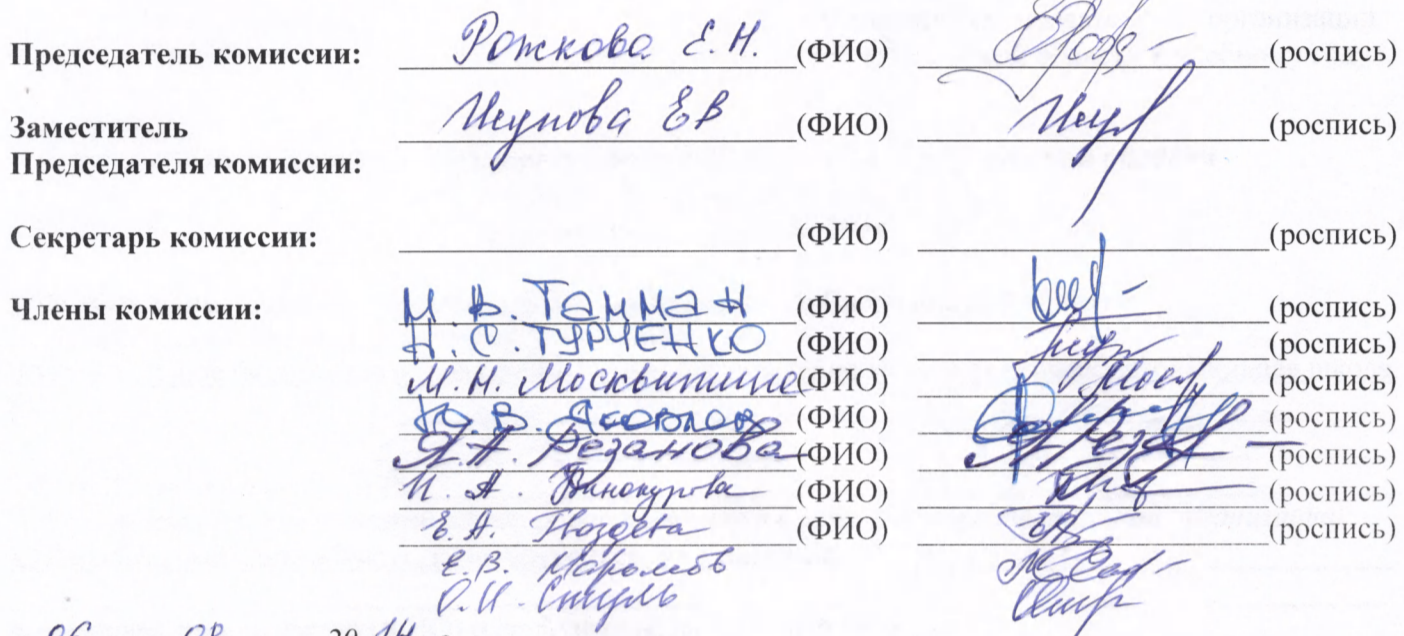 Председатель комиссии: Рожкова Е.Н. (ФИО) (роспись)
Заместитель (ФИО) (роспись)
Председателя комиссии:
Секретарь комиссии: (ФИО) (роспись)
Члены комиссии: М В. Тамман (ФИО) (роспись)
Н. С. ТУРЧЕНКО (ФИО) (роспись)
М.Н. Москвитина (ФИО) (роспись)
Ю. В. Яковлев (ФИО) (роспись)
А.А. Резанова (ФИО) (роспись)
И А. Винокурова (ФИО) (роспись)
Е.А. Гвоздева (ФИО) (роспись)
Е.В.
О.И.
20 14